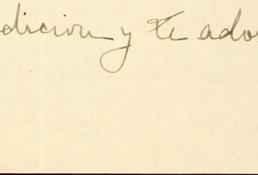 dicion y te ado